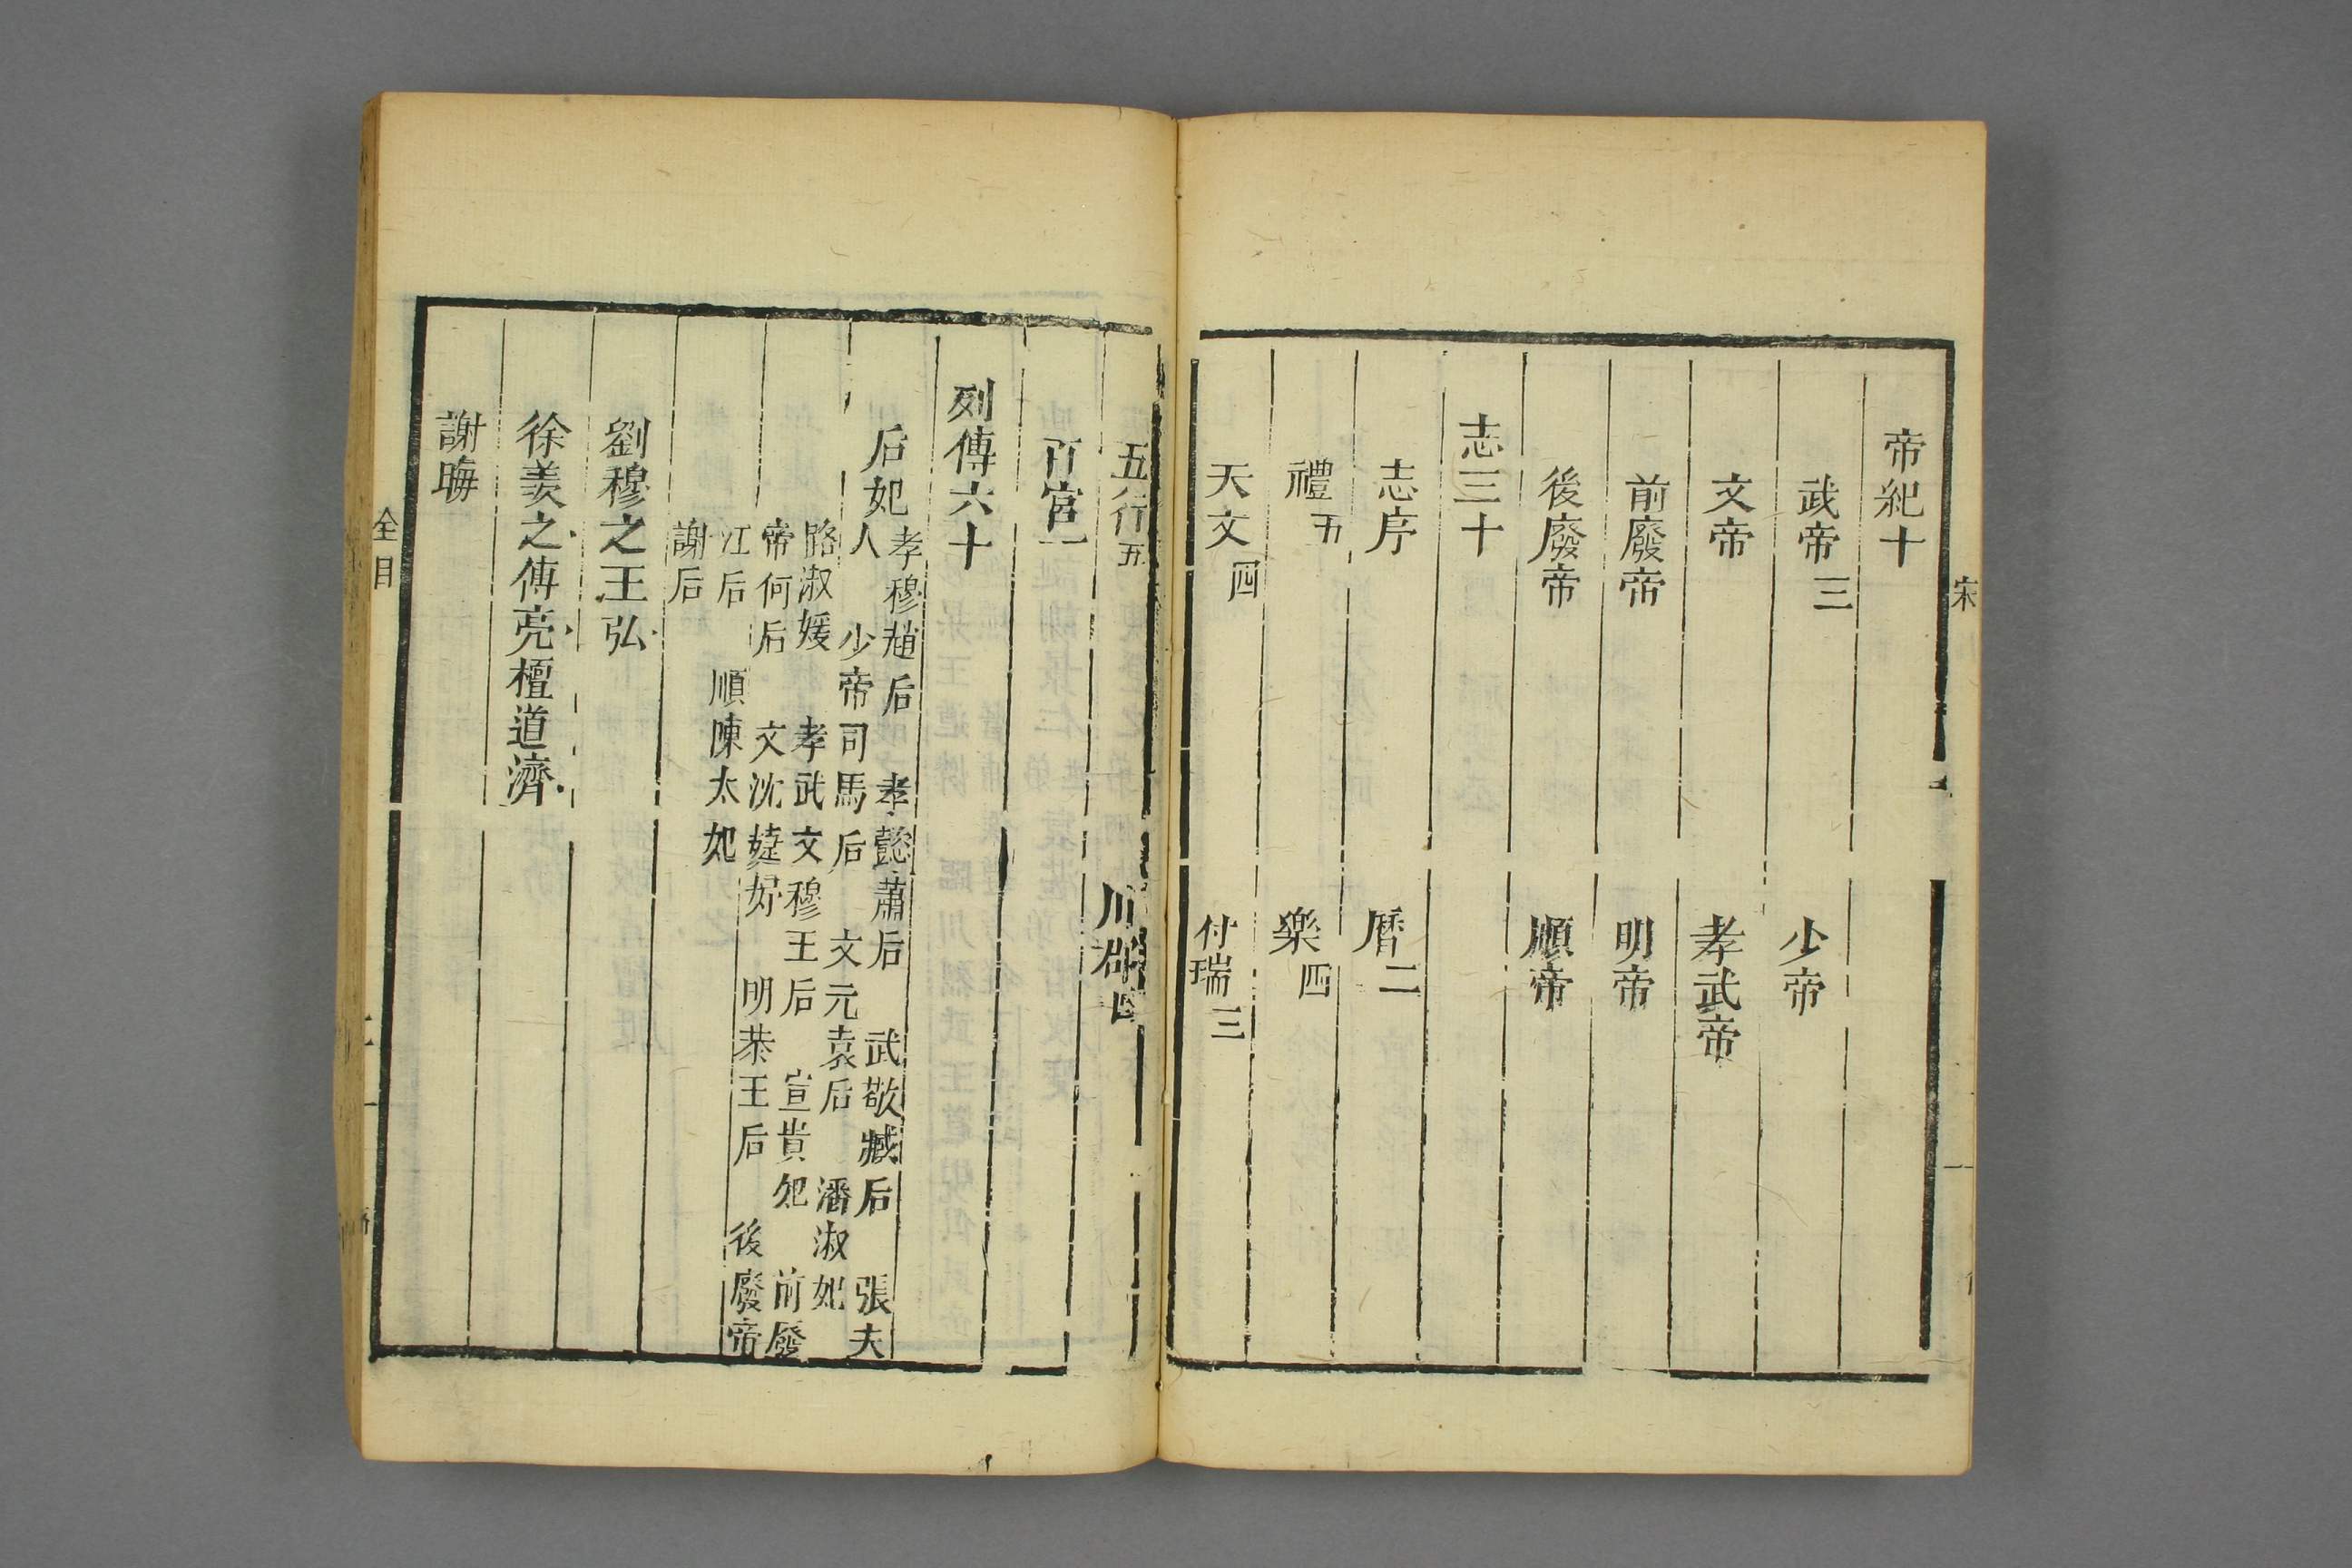 宋
帝紀十
武帝三　少帝
文帝　孝武帝
前廢帝　明帝
後廢帝　順帝
志三十
志序　曆二
禮五　樂四
天文四　付瑞三
五行五　川郡四
百官一
列傳六十
后妃
孝穆趙后　孝懿蕭后　武敬臧后　張夫
人　少帝司馬后　文元袁后　潘淑妃
路淑媛　孝武文穆王后　宣貴妃　前廢
帝何后　文沈婕妤　明恭王后　後廢帝
江后　順陳太妃
謝后
劉穆之王弘
徐羨之傅亮檀道濟
謝晦
全目